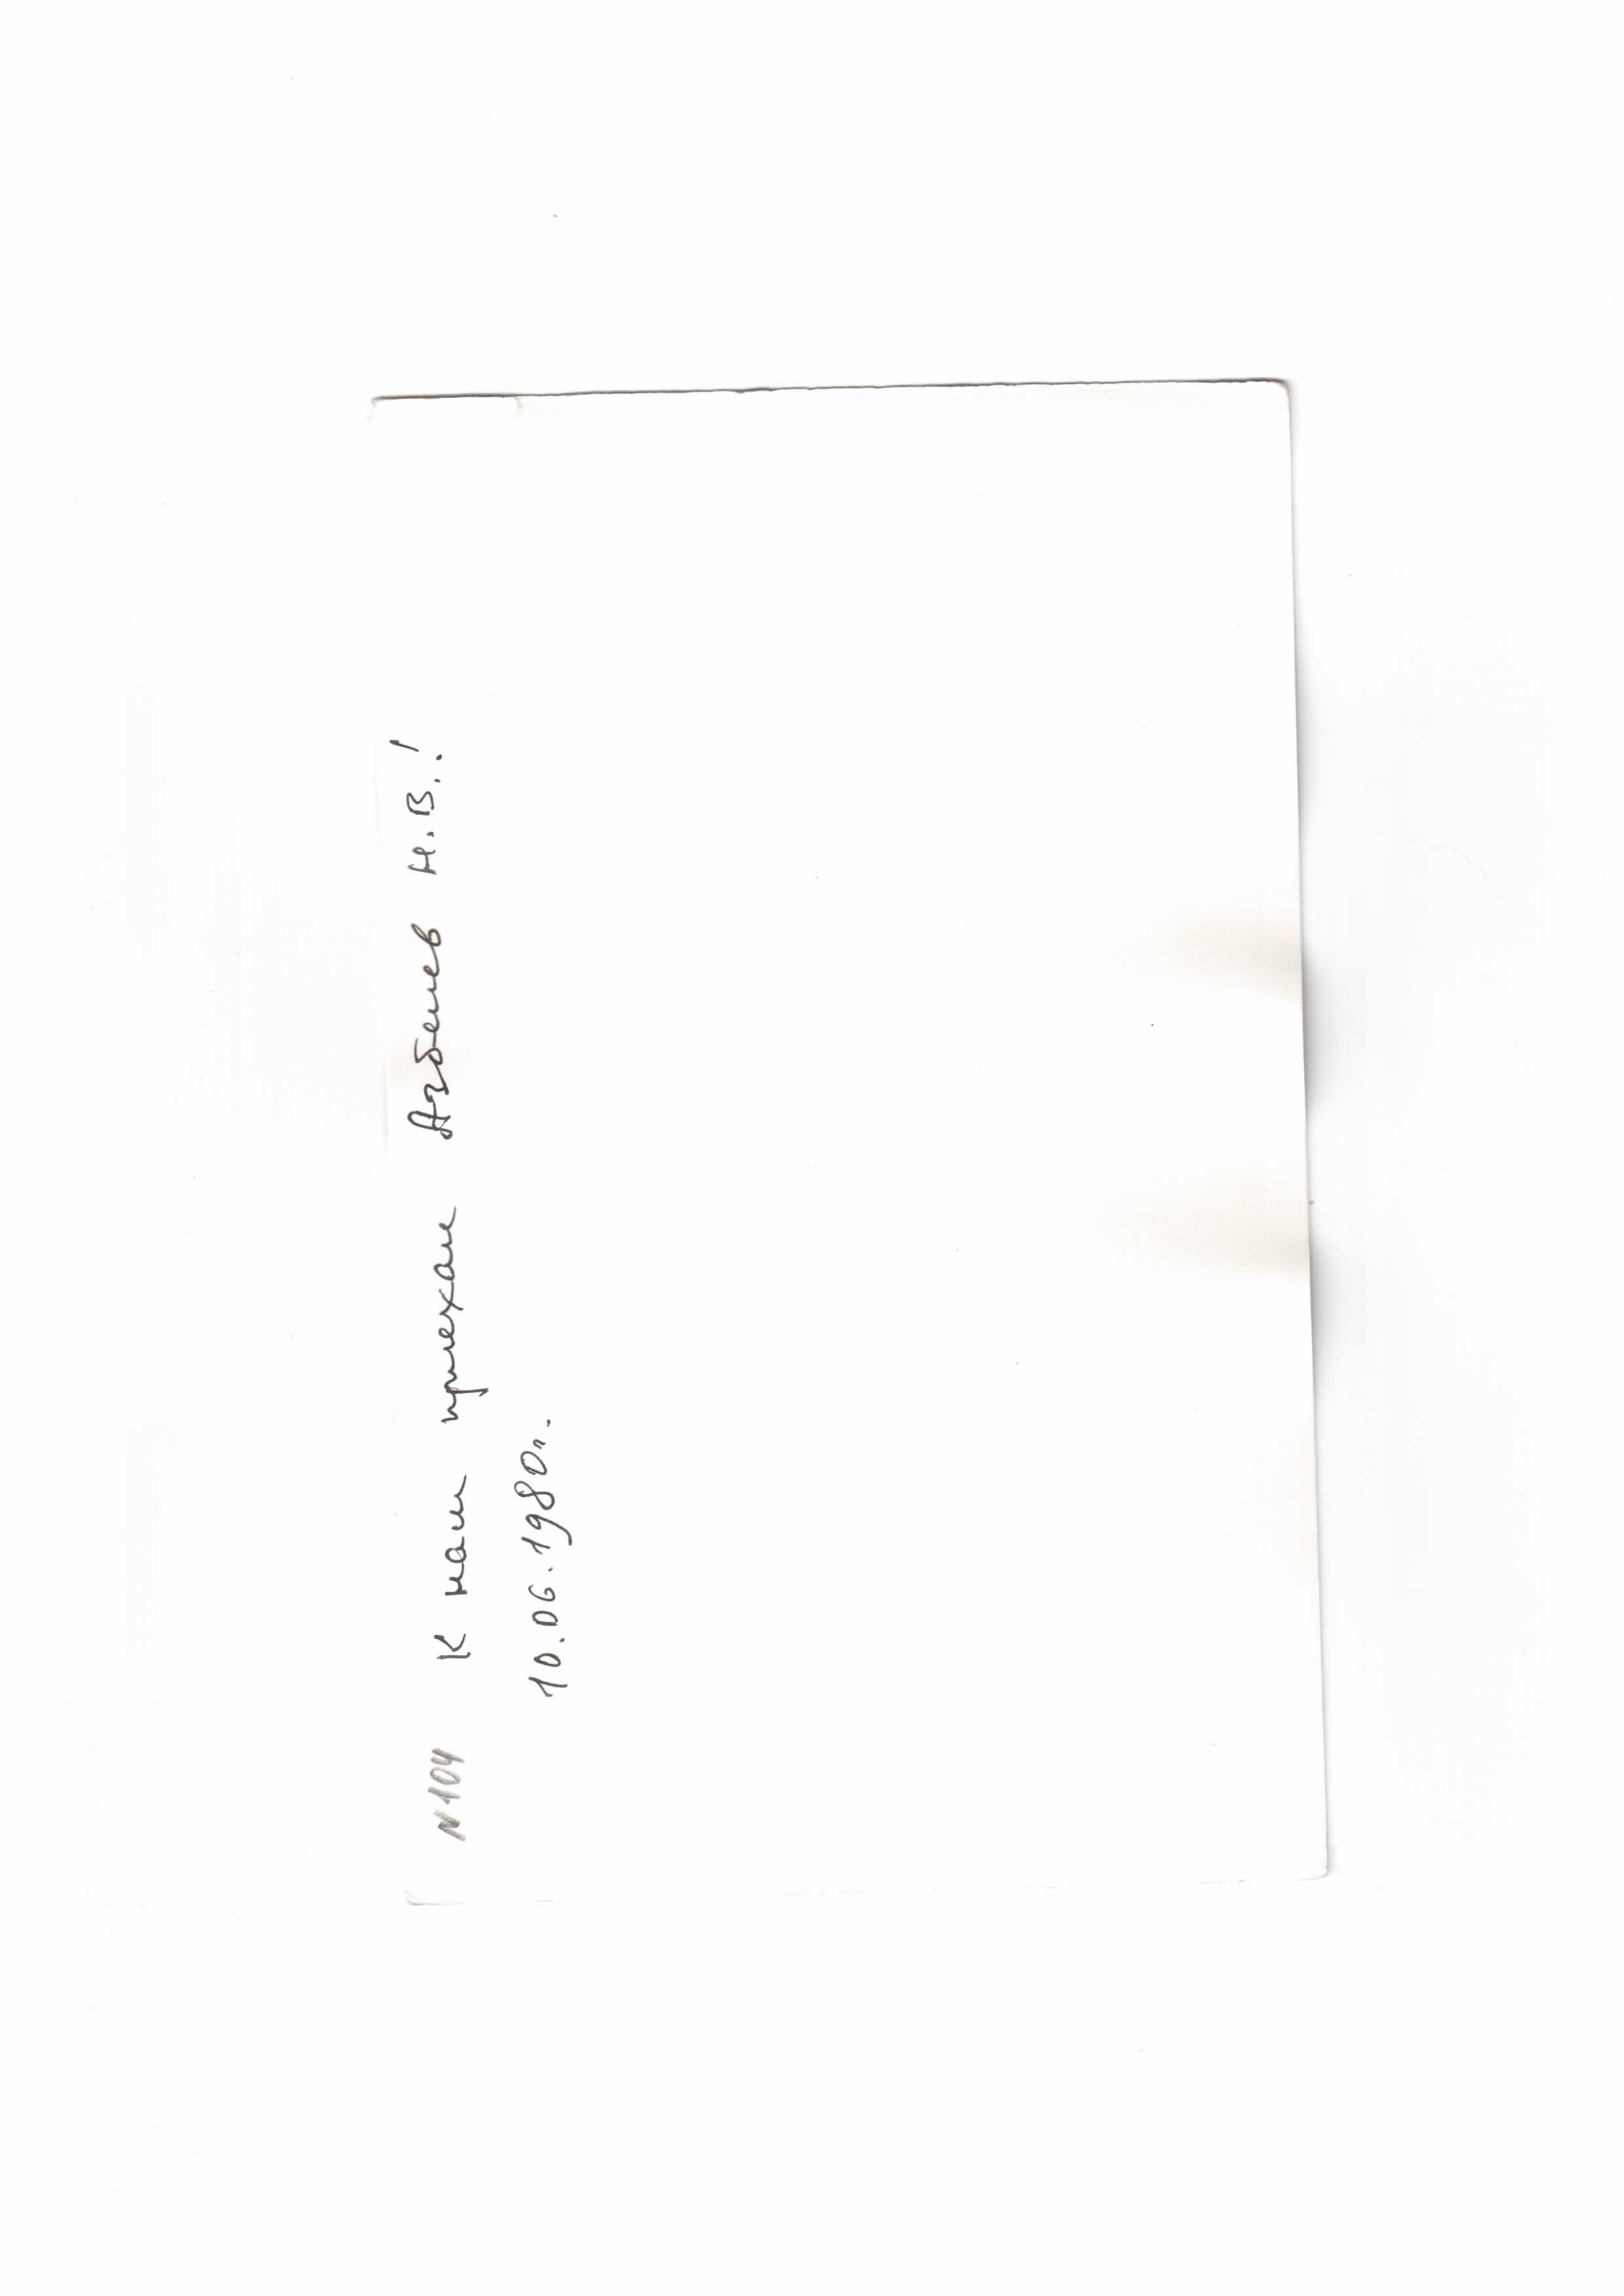 N104 К нам приехал Азбелев Н.В.!
10.06.1980г.